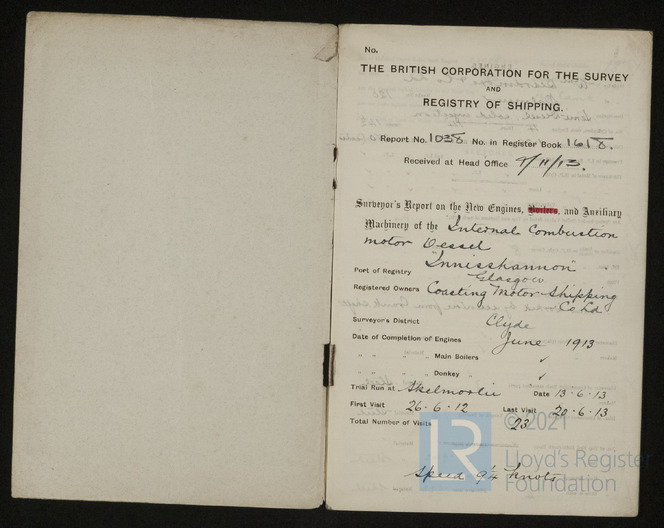 No.
THE BRITISH CORPORATION FOR THE SURVEY
AND
REGISTRY OF SHIPPING.
Report No. 1038 No. in Register Book 1618.
Received at Head Office 9/11/13.
Surveyor's Report on the New Engines, Boilers, and Auxiliary
Machinery of the Internal Combustion
motor Vessel
"Innisshannon"
Port of Registry Glasgow
Registered Owners Coasting Motor Shipping
Co Ld
Surveyor's District Clyde
Date of Completion of Engines June 1913
" " " Main Boilers ✓
" " " Donkey " ✓
Trial Run at Skelmorlie Date 13.6.13
First Visit 26.6.12 Last Visit 20.6.13
Total Number of Visits 23
Speed 9¼ knots
© 2021
LR
Lloyd's Register
Foundation